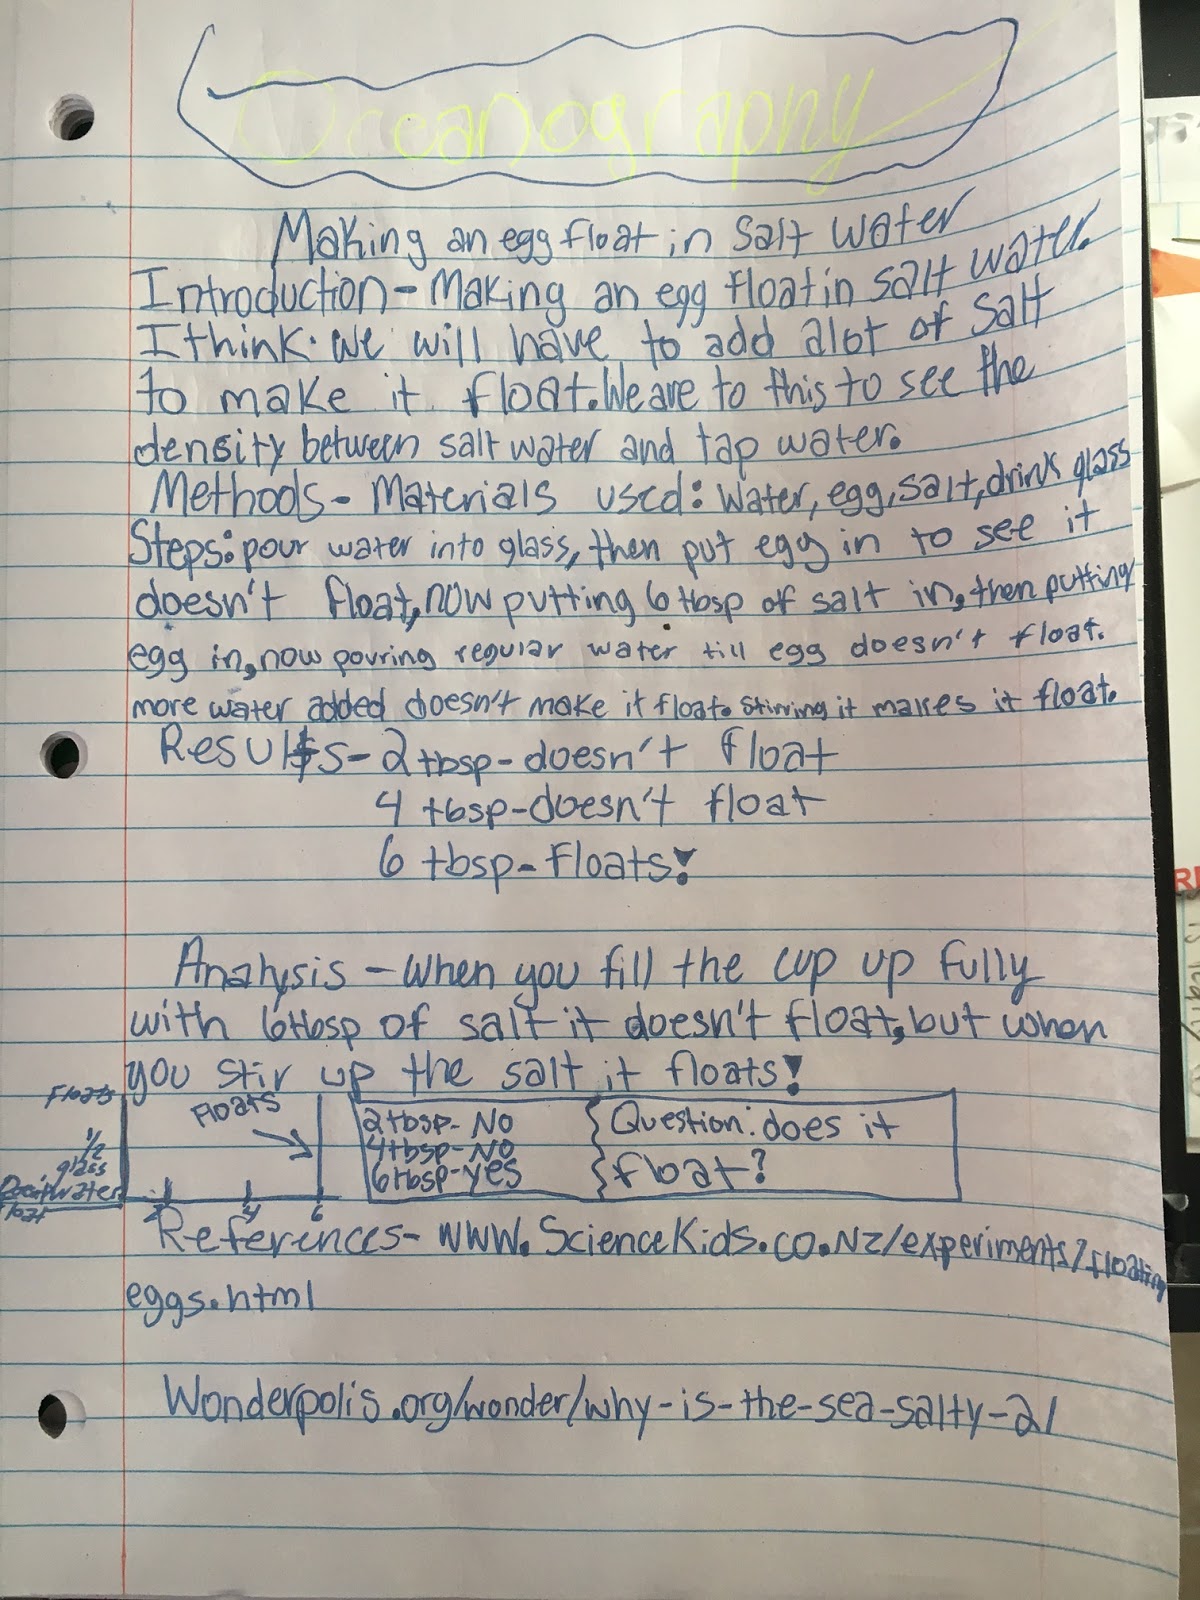 Oceanography
Making an egg float in salt water
Introduction - Making an egg float in salt water.
I think we will have to add alot of salt
to make it float. We are to this to see the
density between salt water and tap water.
Methods - Materials used: Water, egg, salt, drink glass
Steps: pour water into glass, then put egg in to see it
doesn't float, now putting 6 tbsp of salt in, then putting
egg in, now pouring regular water till egg doesn't float.
more water added doesn't make it float. Stirring it makes it float.
Results - 2 tbsp - doesn't float
4 tbsp - doesn't float
6 tbsp - Floats!
Analysis - When you fill the cup up fully
with 6 tbsp of salt it doesn't float, but when
you stir up the salt it floats!
Floats
1/2
glass
water
float
Floats
2 4 6
2 tbsp - No
4 tbsp - No
6 tbsp - yes
Question: does it
float?
References - www.ScienceKids.co.Nz/experiments/floating
eggs.html
Wonderpolis.org/wonder/why-is-the-sea-salty-21